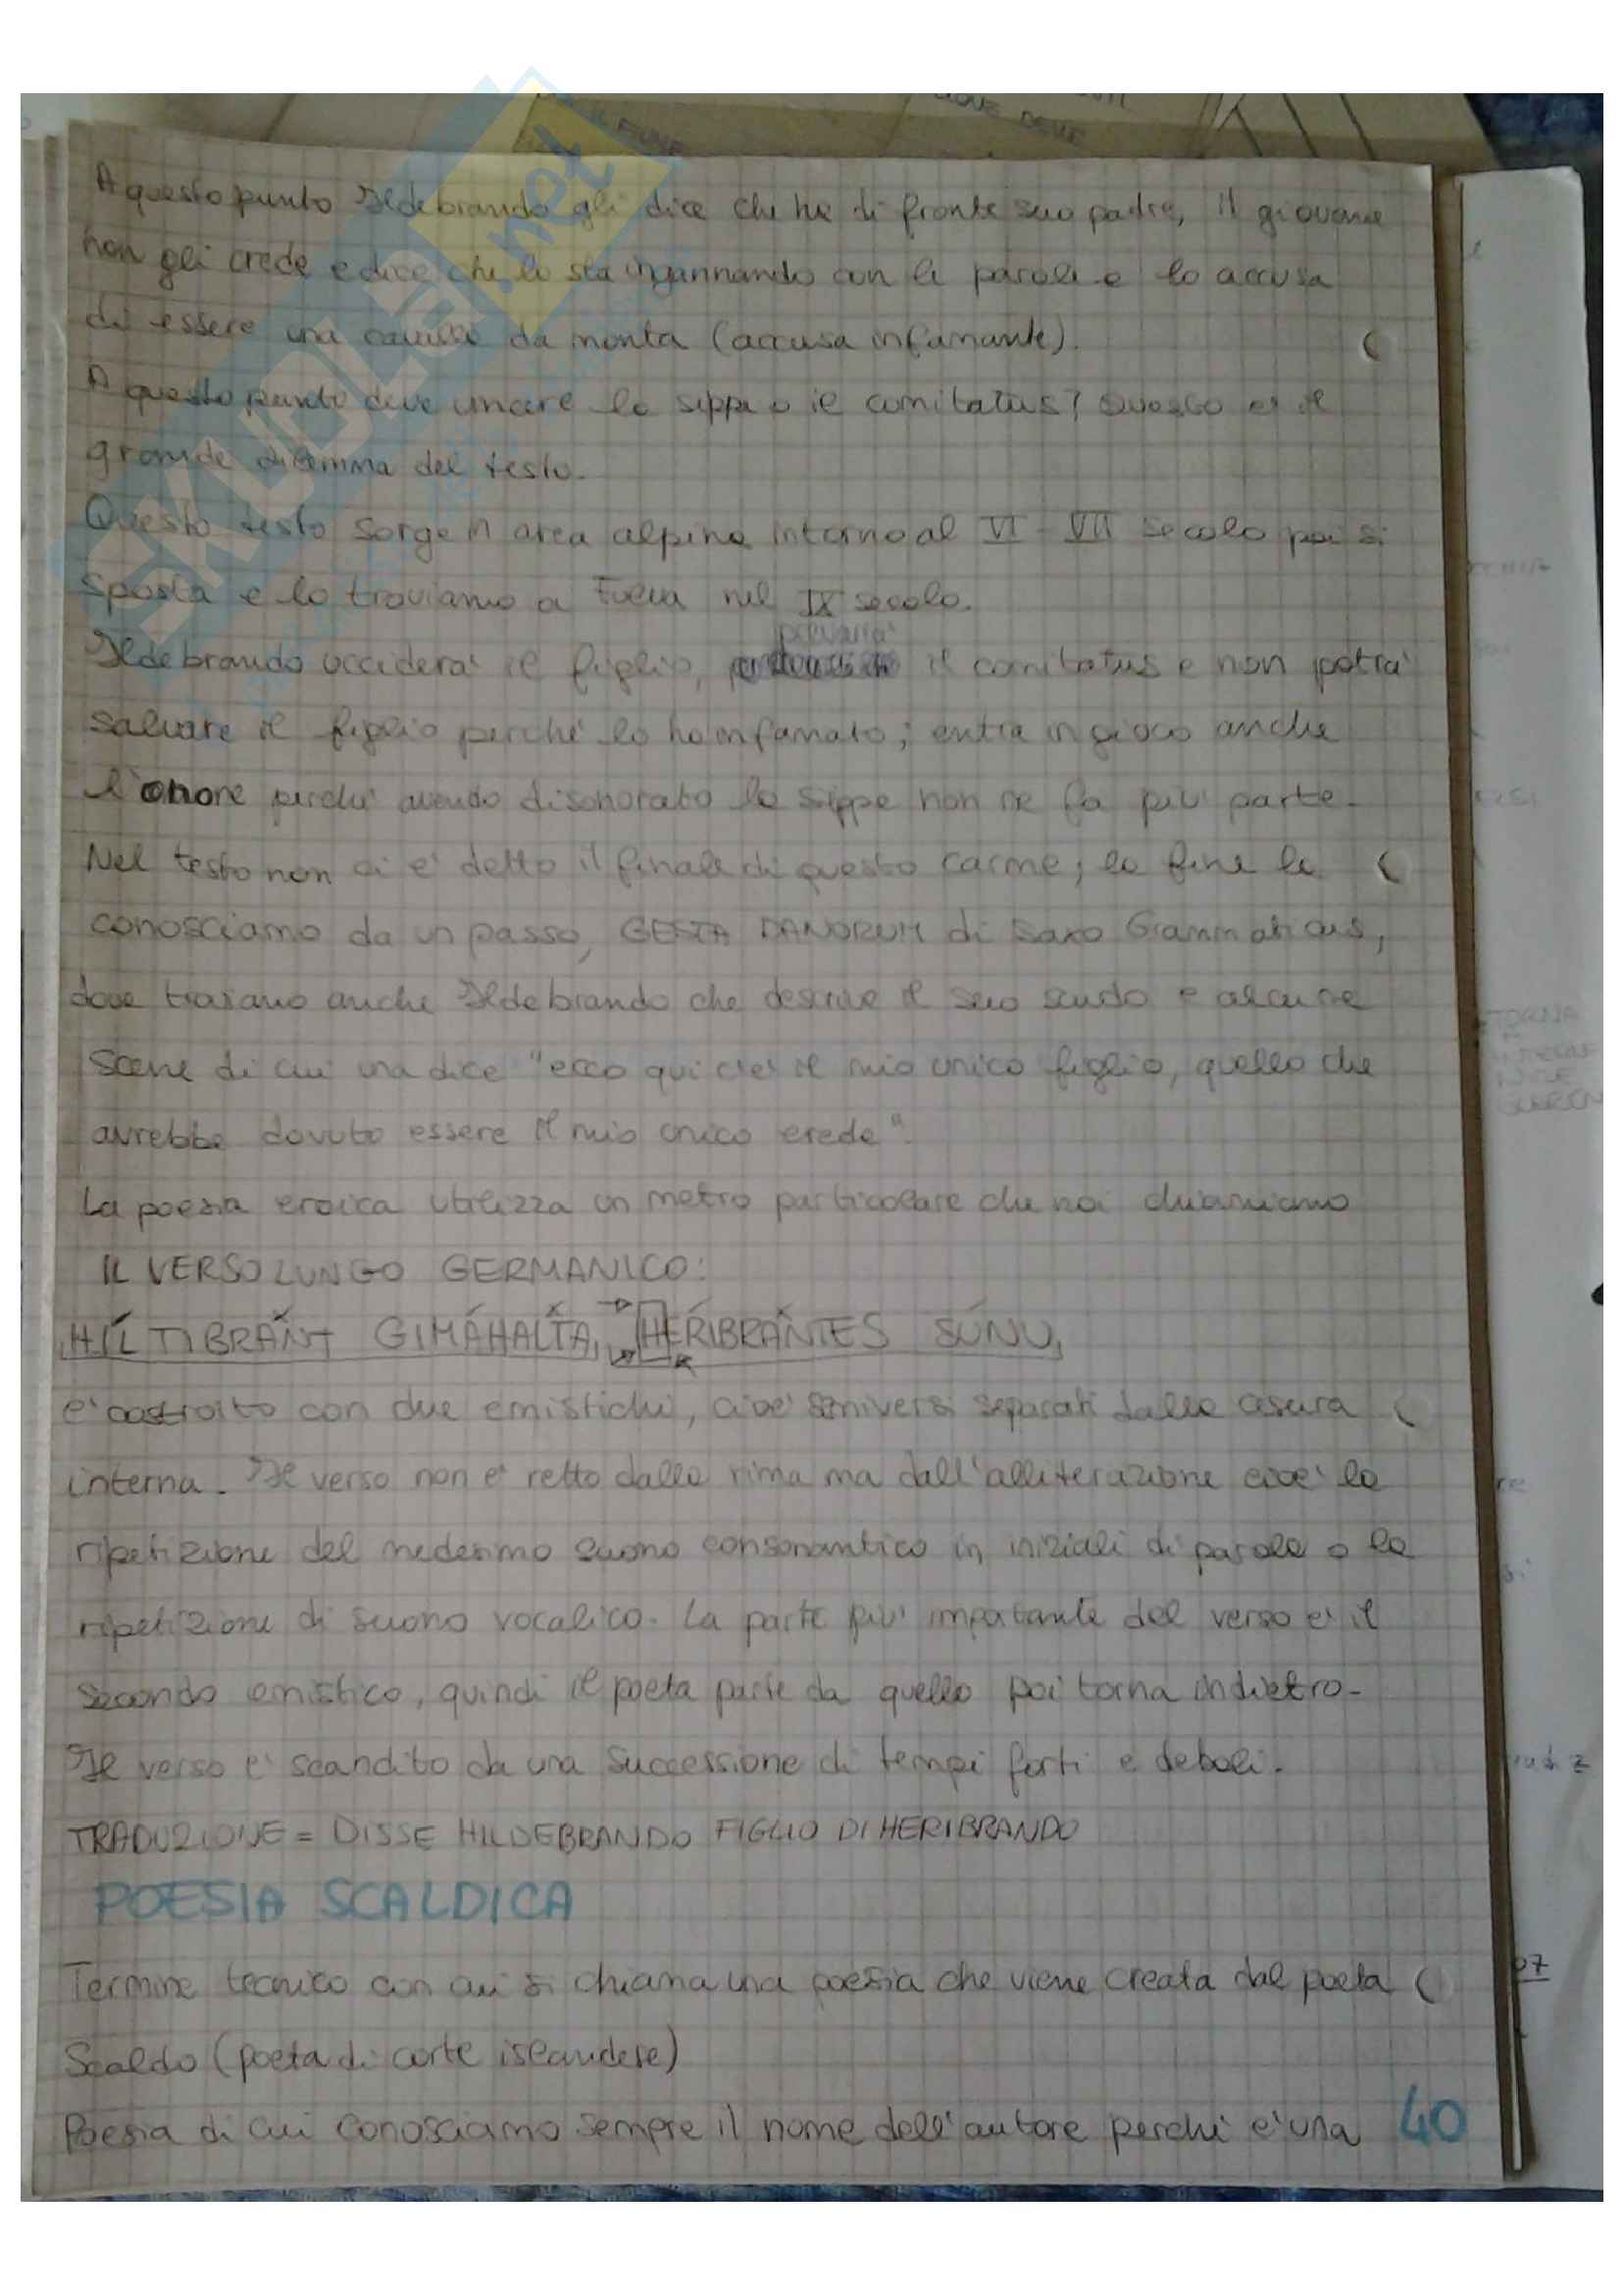 SKUOLA.net
A questo punto Ildebrando gli dice che ha di fronte suo padre, il giovane
non gli crede e dice che lo sta ingannando con le parole e lo accusa
di essere una cavalla da monta (accusa infamante).
A questo punto deve vincere la sippe o il comitatus? Questo è il
grande dilemma del testo.
Questo testo sorge in area alpina intorno al VI - VII secolo poi si
sposta e lo troviamo a Fulda nel IX secolo.
prevarrà
Ildebrando ucciderà il figlio, il comitatus e non potrà
salvare il figlio perché lo ha infamato; entra in gioco anche
l'onore perché avendo disonorato la sippe non ne fa più parte.
Nel testo non ci è detto il finale di questo carme; la fine la
conosciamo da un passo, GESTA DANORUM di Saxo Grammaticus,
dove troviamo anche Ildebrando che descrive il suo scudo e alcune
scene di cui una dice "ecco qui c'è il mio unico figlio, quello che
avrebbe dovuto essere il mio unico erede"
La poesia eroica utilizza un metro particolare che noi chiamiamo
IL VERSO LUNGO GERMANICO:
HÍLTIBRANT GIMÁHALTA, HÉRIBRANTES SÚNU,
è costruito con due emistichi, cioè semiversi separati dalla cesura
interna. Il verso non è retto dalla rima ma dall'allitterazione cioè la
ripetizione del medesimo suono consonantico in iniziali di parola o la
ripetizione di suono vocalico. La parte più importante del verso è il
secondo emistico, quindi il poeta parte da quello poi torna indietro.
Il verso è scandito da una successione di tempi forti e deboli.
TRADUZIONE = DISSE HILDEBRANDO FIGLIO DI HERIBRANDO
POESIA SCALDICA
Termine tecnico con cui si chiama una poesia che viene creata dal poeta
Scaldo (poeta di corte islandese)
Poesia di cui conosciamo sempre il nome dell'autore perché è una
40